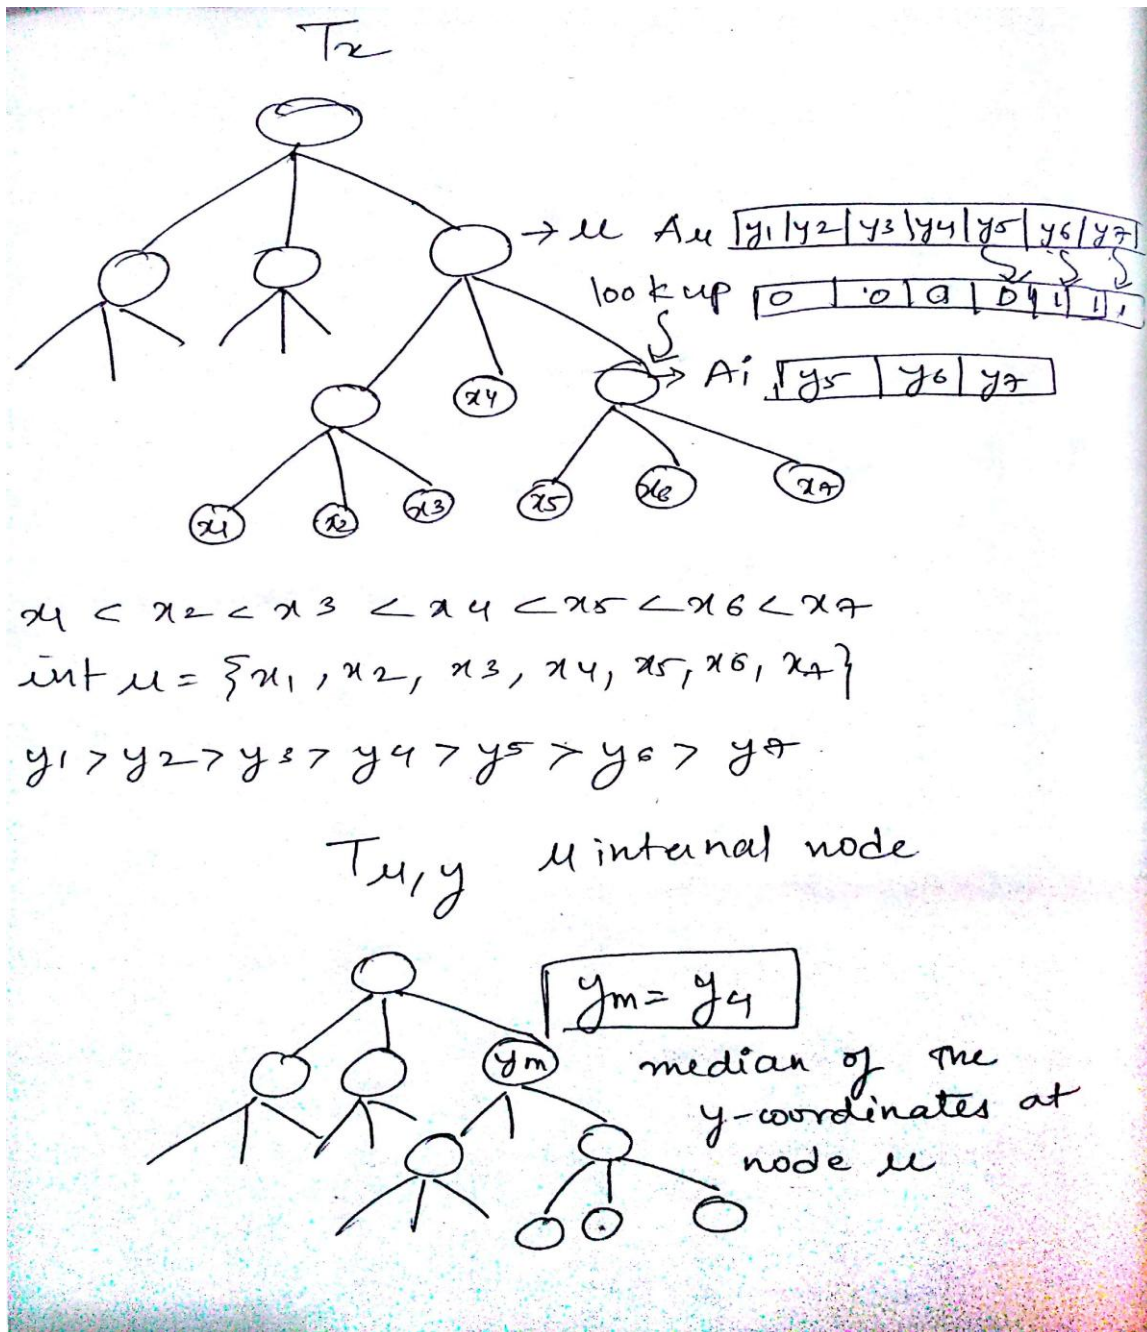 Tx
→ u Au y1 y2 y3 y4 y5 y6 y7
lookup 0 0 0 0 1 1 1
→ Ai y5 y6 y7
x4
x1 x2 x3 x5 x6 x7
x1 < x2 < x3 < x4 < x5 < x6 < x7
int u = {x1, x2, x3, x4, x5, x6, x7}
y1 > y2 > y3 > y4 > y5 > y6 > y7
Tu,y u internal node
ym = y4
ym
median of the
y-coordinates at
node u